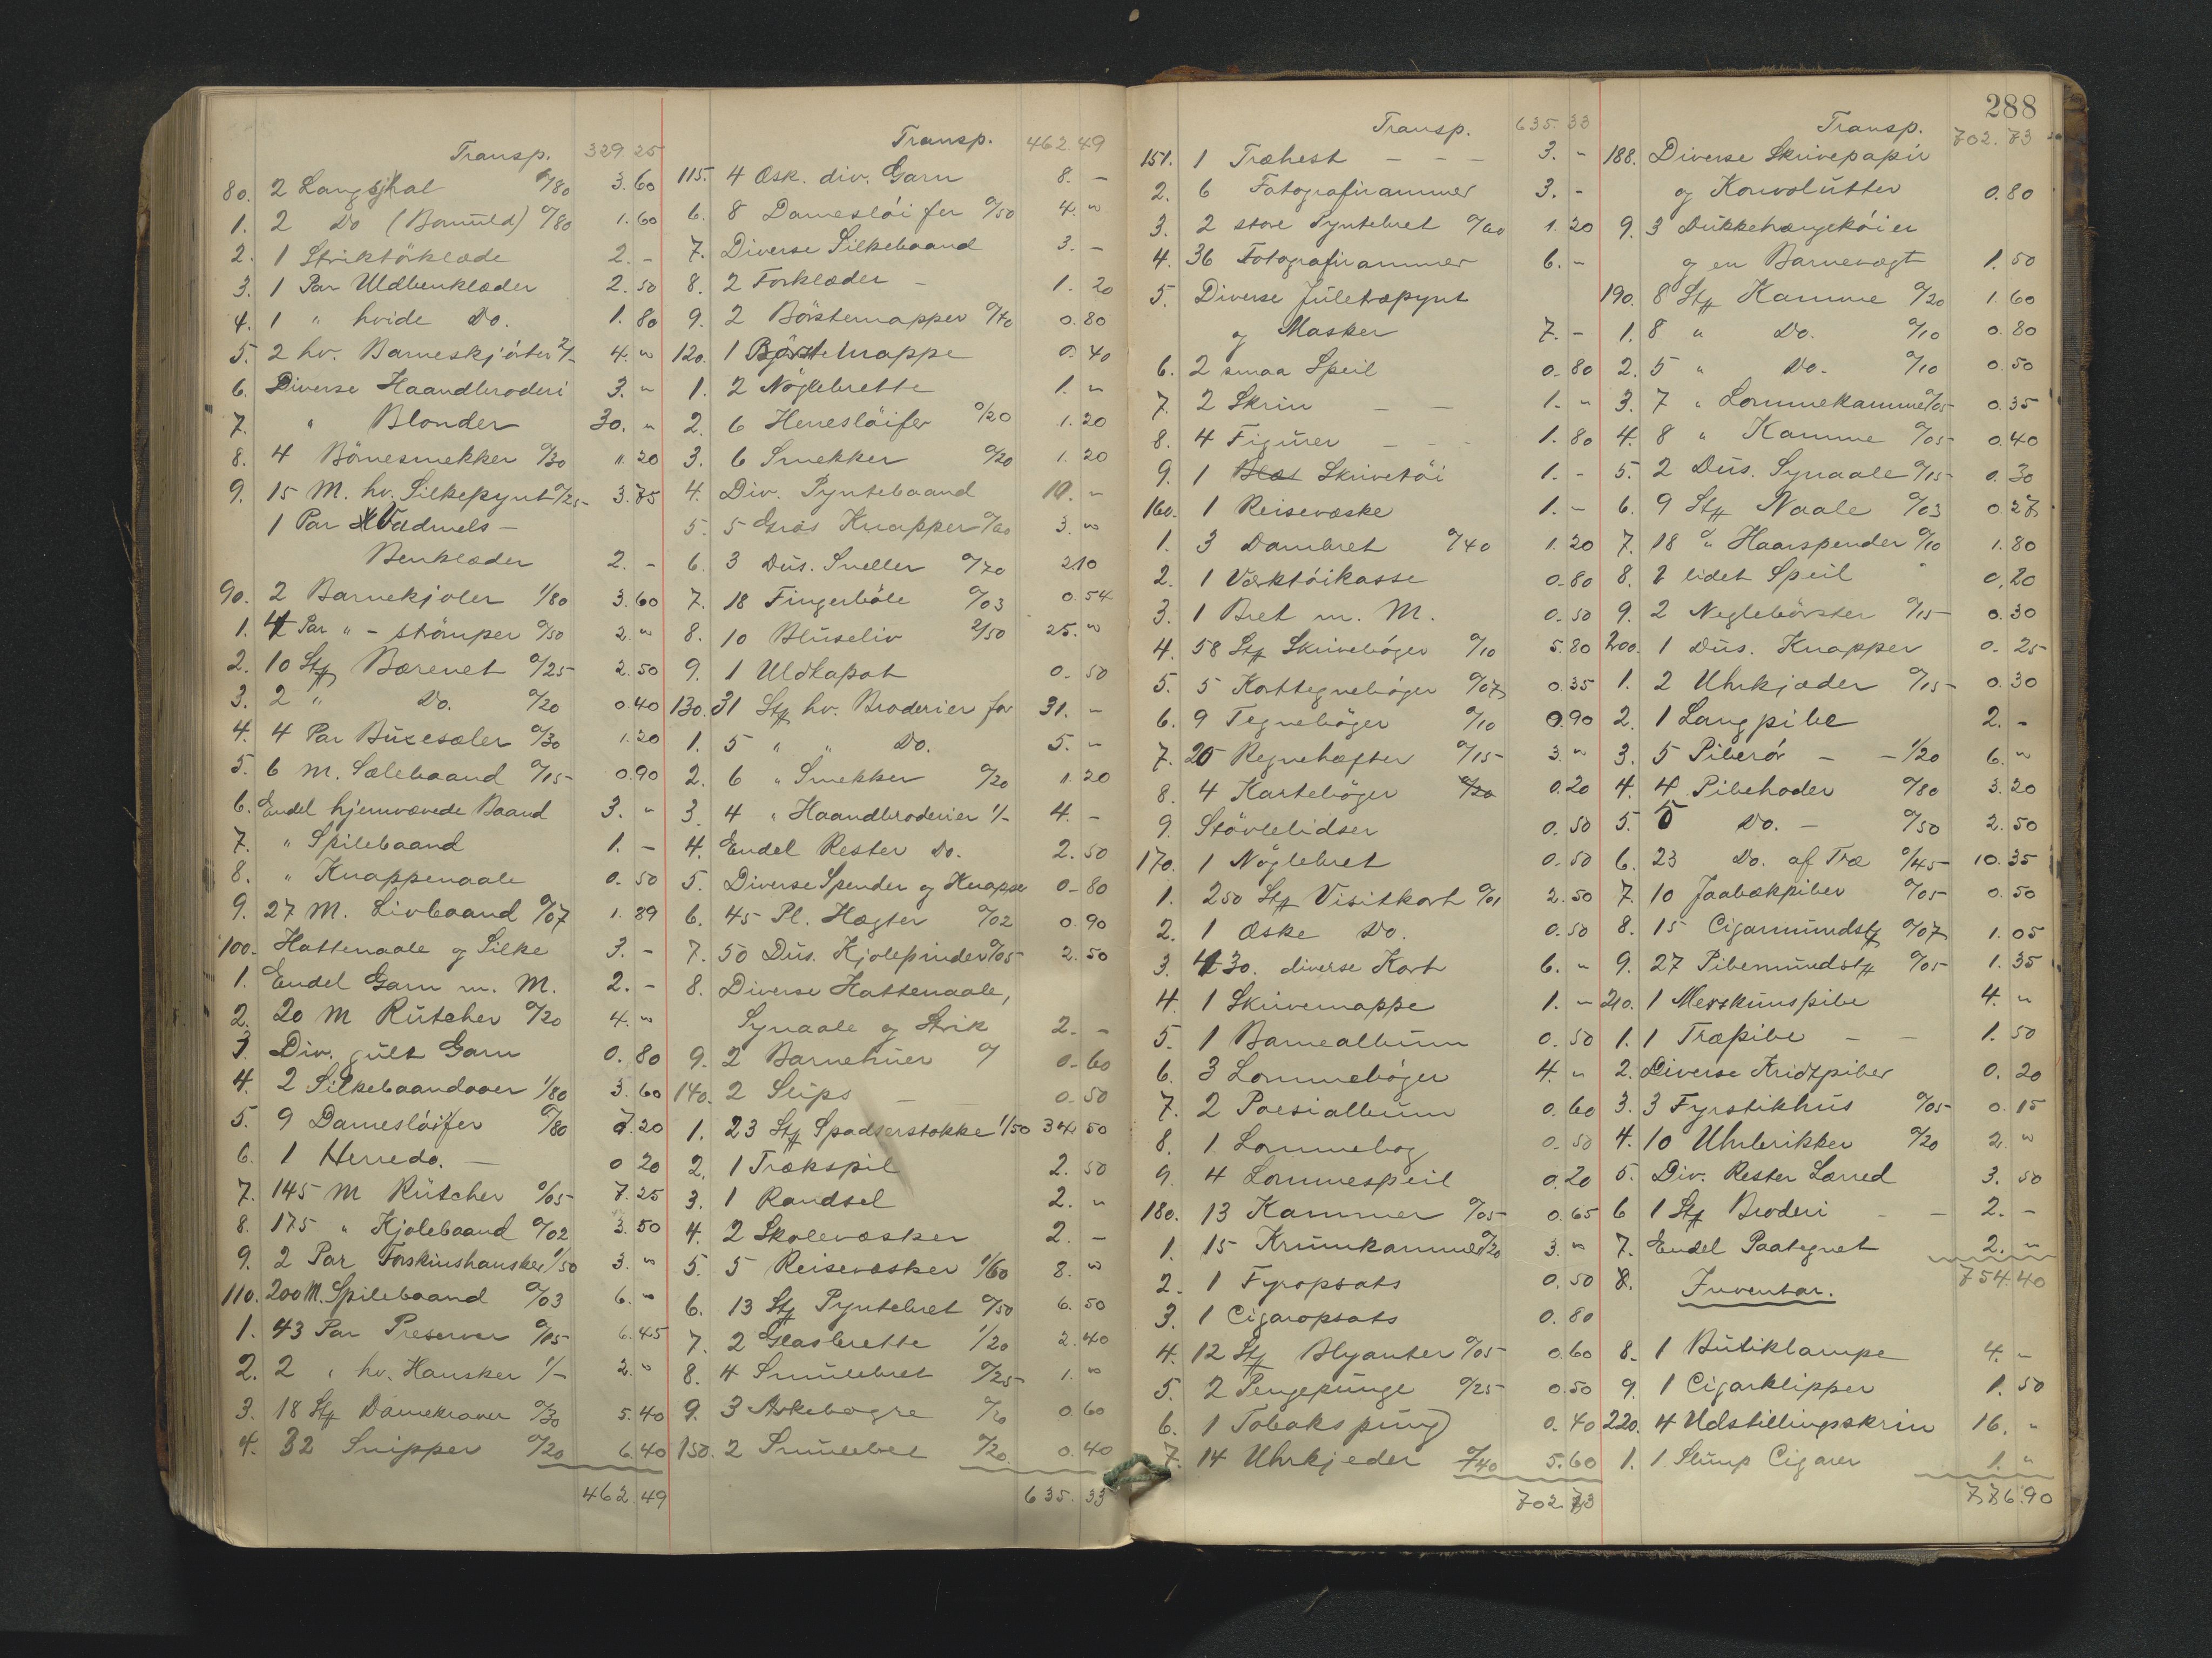 Transp. 329.25
80. 2 Langsjhal %80 3.60
1. 2 Do (Bomuld) %80 1.60
2. 1 Striktörklæde 2.-
3. 1 Par Uldbenklæder 2.50
4. 1 " hvide Do. 1.80
5. 2 hv. Barneskjörter 2/- 4. "
6. Diverse Haandbroderi 3. "
7. " Blonder 30. "
8. 4 Börnesmekker %30 1.20
9. 15 M. hv. Silkepynt %25 3.75
1 Par Vadmels-
Benklæder 2.-
90. 2 Barnekjoler 1/80 3.60
1. 4 Par " - strömper %50 2. "
2. 10 Stk Bærenet %25 2.50
3. 2 " Do. %20 0.40
4. 4 Par Buxesæler %30 1.20
5. 6 m. Sælebaand %15 0.90
6. Endel hjemvævede Baand 3. "
7. " Spilebaand 1. -
8. " Knappenaale 0.50
9. 27 M. Livbaand %07 1.89
100. Hattenaale og Silke 3. -
1. Endel Garn m. M. 2. -
2. 20 M Rütcher %20 4. "
3. Div. gult Garn 0.80
4. 2 Silkebaand 1/80 3.60
5. 9 Damesløifer %80 7.20
6. 1 Herredo. - 0 20
7. 145 M Rütcher %05 7.25
8. 175 " Kjolebaand %02 3.50
9. 2 Par Forskinshansker 1/50 3. "
110. 200 M. Spilebaand %03 6. "
1. 43 Par Preserver %15 6.45
2. 2 " hv. Hansker 1/- 2. "
3. 18 Stk Damekraver %30 5.40
4. 32 Snipper %20 6.40
462.49
Transp. 462.49
115. 4 Æsk. div. Garn 8. -
6. 8 Damesløifer %50 4. "
7. Diverse Silkebaand 3. -
8. 2 Forklæder - 1. 20
9. 2 Börstemapper %40 0.80
120. 1 Börstemappe 0.40
1. 2 Nöglebrette 1. "
2. 6 Herresløifer %20 1.20
3. 6 Smekker %20 1.20
4. Div. Pyntebaand 10. "
5. 5 Gros Knapper %60 3. "
6. 3 Dus. Sneller %70 2.10
7. 18 Fingerböle %03 0.54
8. 10 Bluseliv 2/50 25. "
9. 1 Uldkapot 0.50
130. 31 Stk hv. Broderier for 31. -
1. 5 " " Do. 5. "
2. 6 " Smekker %20 1.20
3. 4 " Haandbroderier 1/- 4. -
4. Endel Rester Do. 2.50
5. Diverse Spender og Knapper 0-80
6. 45 Pl. Hægter %02 0.90
7. 50 Dus. Kjolepinder %05 2.50
8. Diverse Hattenaale,
Synaale og Strik 2. -
9. 2 Barnehuer 0.60
140. 2 Slips - - 0.50
1. 23 Stk Spadserstokke 1/50 34.50
2. 1 Trækspil 2.50
3. 1 Randsel 2. "
4. 2 Skolevæsker 2. -
5. 5 Reisevæsker 1/60 8. "
6. 13 Stk Pyntebret %50 6.50
7. 2 Glasbrette 1/20 2.40
8. 4 Smulebret %25 1. "
9. 3 Askebægre %20 0.60
150. 2 Smulebet %20 0.40
635.33
Transp. 635.33
151. 1 Træhest - - - 3. -
2. 6 Fotografirammer 3. -
3. 2 store Pyntebret %60 1.20
4. 36 Fotografirammer 6. -
5. Diverse Juletræpynt
og Masker 7. -
6. 2 smaa Speil 0.80
7. 2 Skrin - - 1. "
8. 4 Figurer - - - 1.80
9. 1 Skrivetöi 1. -
160. 1 Reisevæske 1. -
1. 3 Dambret %40 1.20
2. 1 Værktöikasse 0.80
3. 1 Bret m. M. 0.50
4. 58 Stk Skrivebøger %10 5.80
5. 5 Korttegnebøger %07 0.35
6. 9 Tegnebøger %10 0.90
7. 20 Regnehæfter %15 3. "
8. 4 Kartebøger 0.20
9. Stövlelidser 0.50
170. 1 Nöglebret 0.50
1. 250 Stk Visitkort %01 2.50
2. 1 Æske Do. 0.50
3. 430. diverse Kort 6. "
4. 1 Skrivemappe 1. "
5. 1 Barnealbum 0.50
6. 3 Lommebøger 4. "
7. 2 Poesialbum 0.60
8. 1 Lommebog 0.50
9. 4 Lommespeil 0.20
180. 13 Kammer %05 0.65
1. 15 Krumkamme %20 3. "
2. 1 Fyropsats 0.50
3. 1 Cigaropsats 0.80
4. 12 Stk Blyanter %05 0.60
5. 2 Pengepunge %25 0.50
6. 1 Tobakspung 0.40
7. 14 Uhrkjeder %40 5.60
702.73
288
Transp. 702.73
188. Diverse Skrivepapir
og Konvolutter 0.80
9. 3 Dukkehængekøier
og en Barnevægt 1.50
190. 8 Stk Kamme %20 1.60
1. 8 " Do. %10 0.80
2. 5 " Do. %10 0.50
3. 7 " Lommekamme %05 0.35
4. 8 " Kamme %05 0.40
5. 2 Dus. Synaale %15 0.30
6. 9 Stk Naale %03 0.27
7. 18 " Haarspender %10 1.80
8. 1 lidet Speil 0,20
9. 2 Neglebörster %15 0.30
200. 1 Dus. Knapper 0.25
1. 2 Uhrkjæder %15 0.30
2. 1 Langpibe 2. -
3. 5 Piberör - - 1/20 6. "
4. 4 Pibehoder %80 3.20
5. 5 Do. - %50 2.50
6. 23 Do. af Træ %45 10.35
7. 10 Jaabækpiber %05 0.50
8. 15 Cigarmundstk %07 1.05
9. 27 Pibemundstk %05 1.35
210. 1 Merskumspibe 4. "
1. 1 Træpibe - - 1.50
2. Diverse Kridtpiber 0.20
3. 3 Fyrstikhus %05 0.15
4. 10 Uhrbrikker %20 2. "
5. Div. Rester Lærred 3.50
6 1 Stk Broderi - - 2. -
7. Endel Paategnet 2. "
754.40
8. Inventar.
8. 1 Butiklampe 4. "
9. 1 Cigarklipper 1.50
220. 4 Udstillingsskrin 16. "
1. 1 Slump Cigarer 1. "
776.90